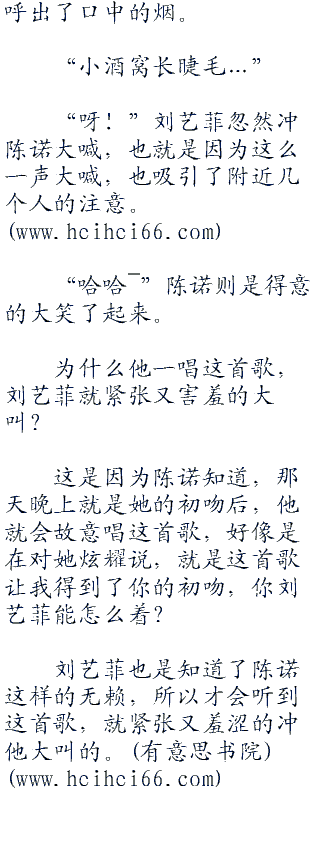 呼出了口中的烟。
“小酒窝长睫毛...”
“呀！”刘艺菲忽然冲
陈诺大喊，也就是因为这么
一声大喊，也吸引了附近几
个人的注意。
(www.hcihci66.com)
“哈哈¯”陈诺则是得意
的大笑了起来。
为什么他一唱这首歌，
刘艺菲就紧张又害羞的大
叫？
这是因为陈诺知道，那
天晚上就是她的初吻后，他
就会故意唱这首歌，好像是
在对她炫耀说，就是这首歌
让我得到了你的初吻，你刘
艺菲能怎么着？
刘艺菲也是知道了陈诺
这样的无赖，所以才会听到
这首歌，就紧张又羞涩的冲
他大叫的。(有意思书院)
(www.hcihci66.com)